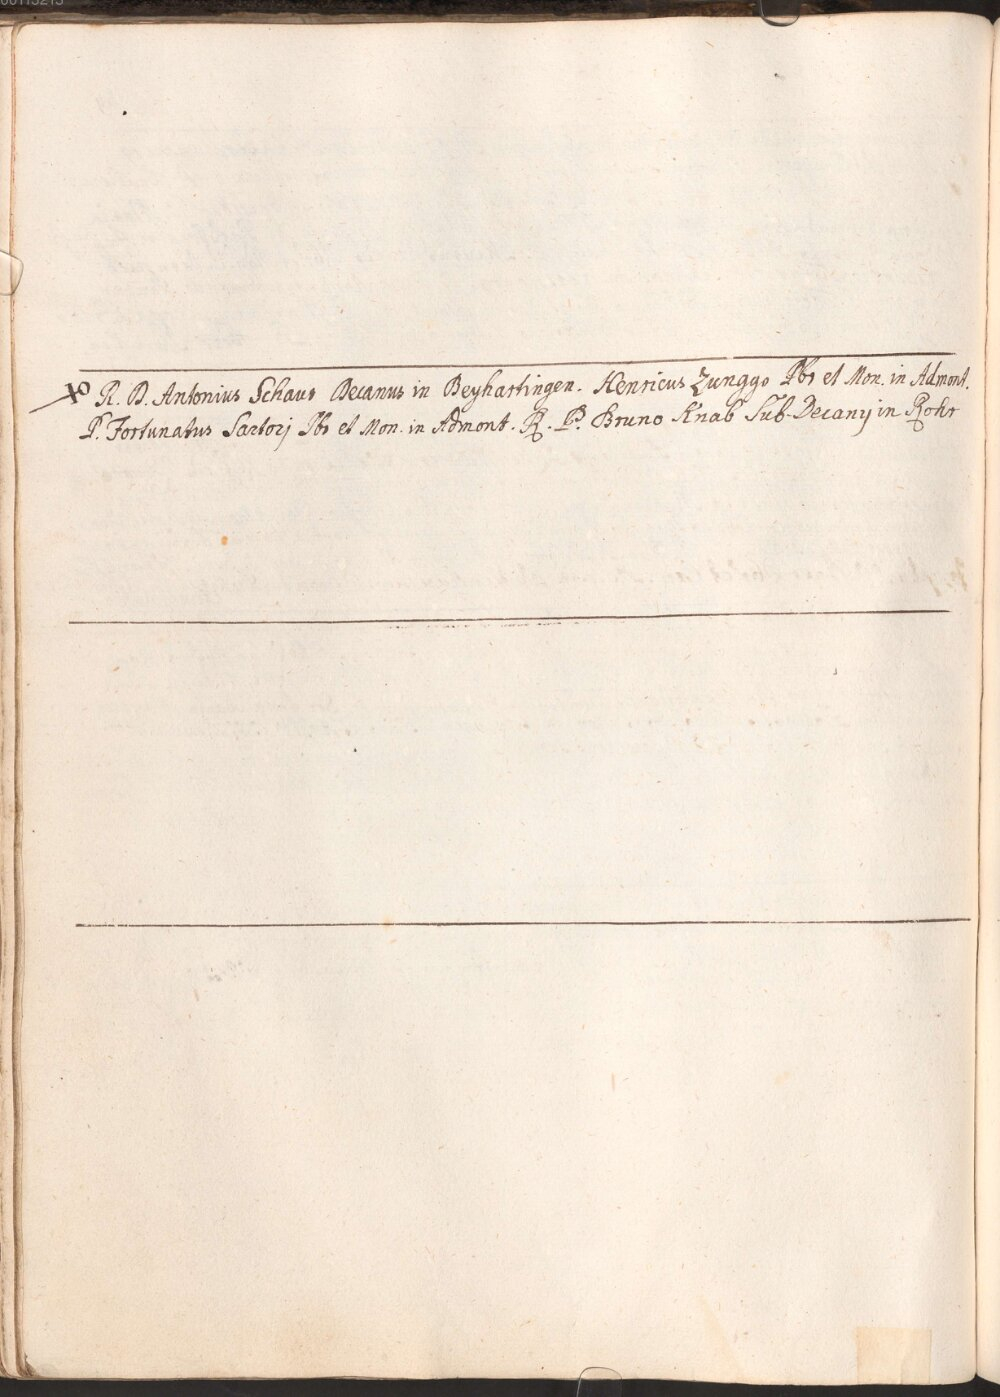 R. D. Antonius Schaur Decanus in Beyhartingen. Henricus Zunggo Pbr et Mon. in Admont.
P. Fortunatus Sartorj Pbr et Mon. in Admont. R. P. Bruno Knab Sub-Decanÿ in Rohr